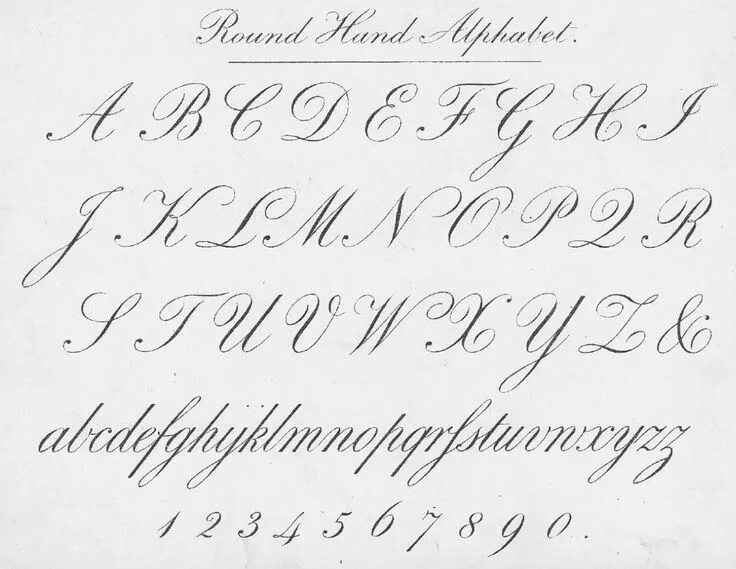 Round Hand Alphabet.
A B C D E F G H I
J K L M N O P Q R
S T U V W X Y Z &
abcdefghijklmnopqrſstuvwxyzz
1 2 3 4 5 6 7 8 9 0.